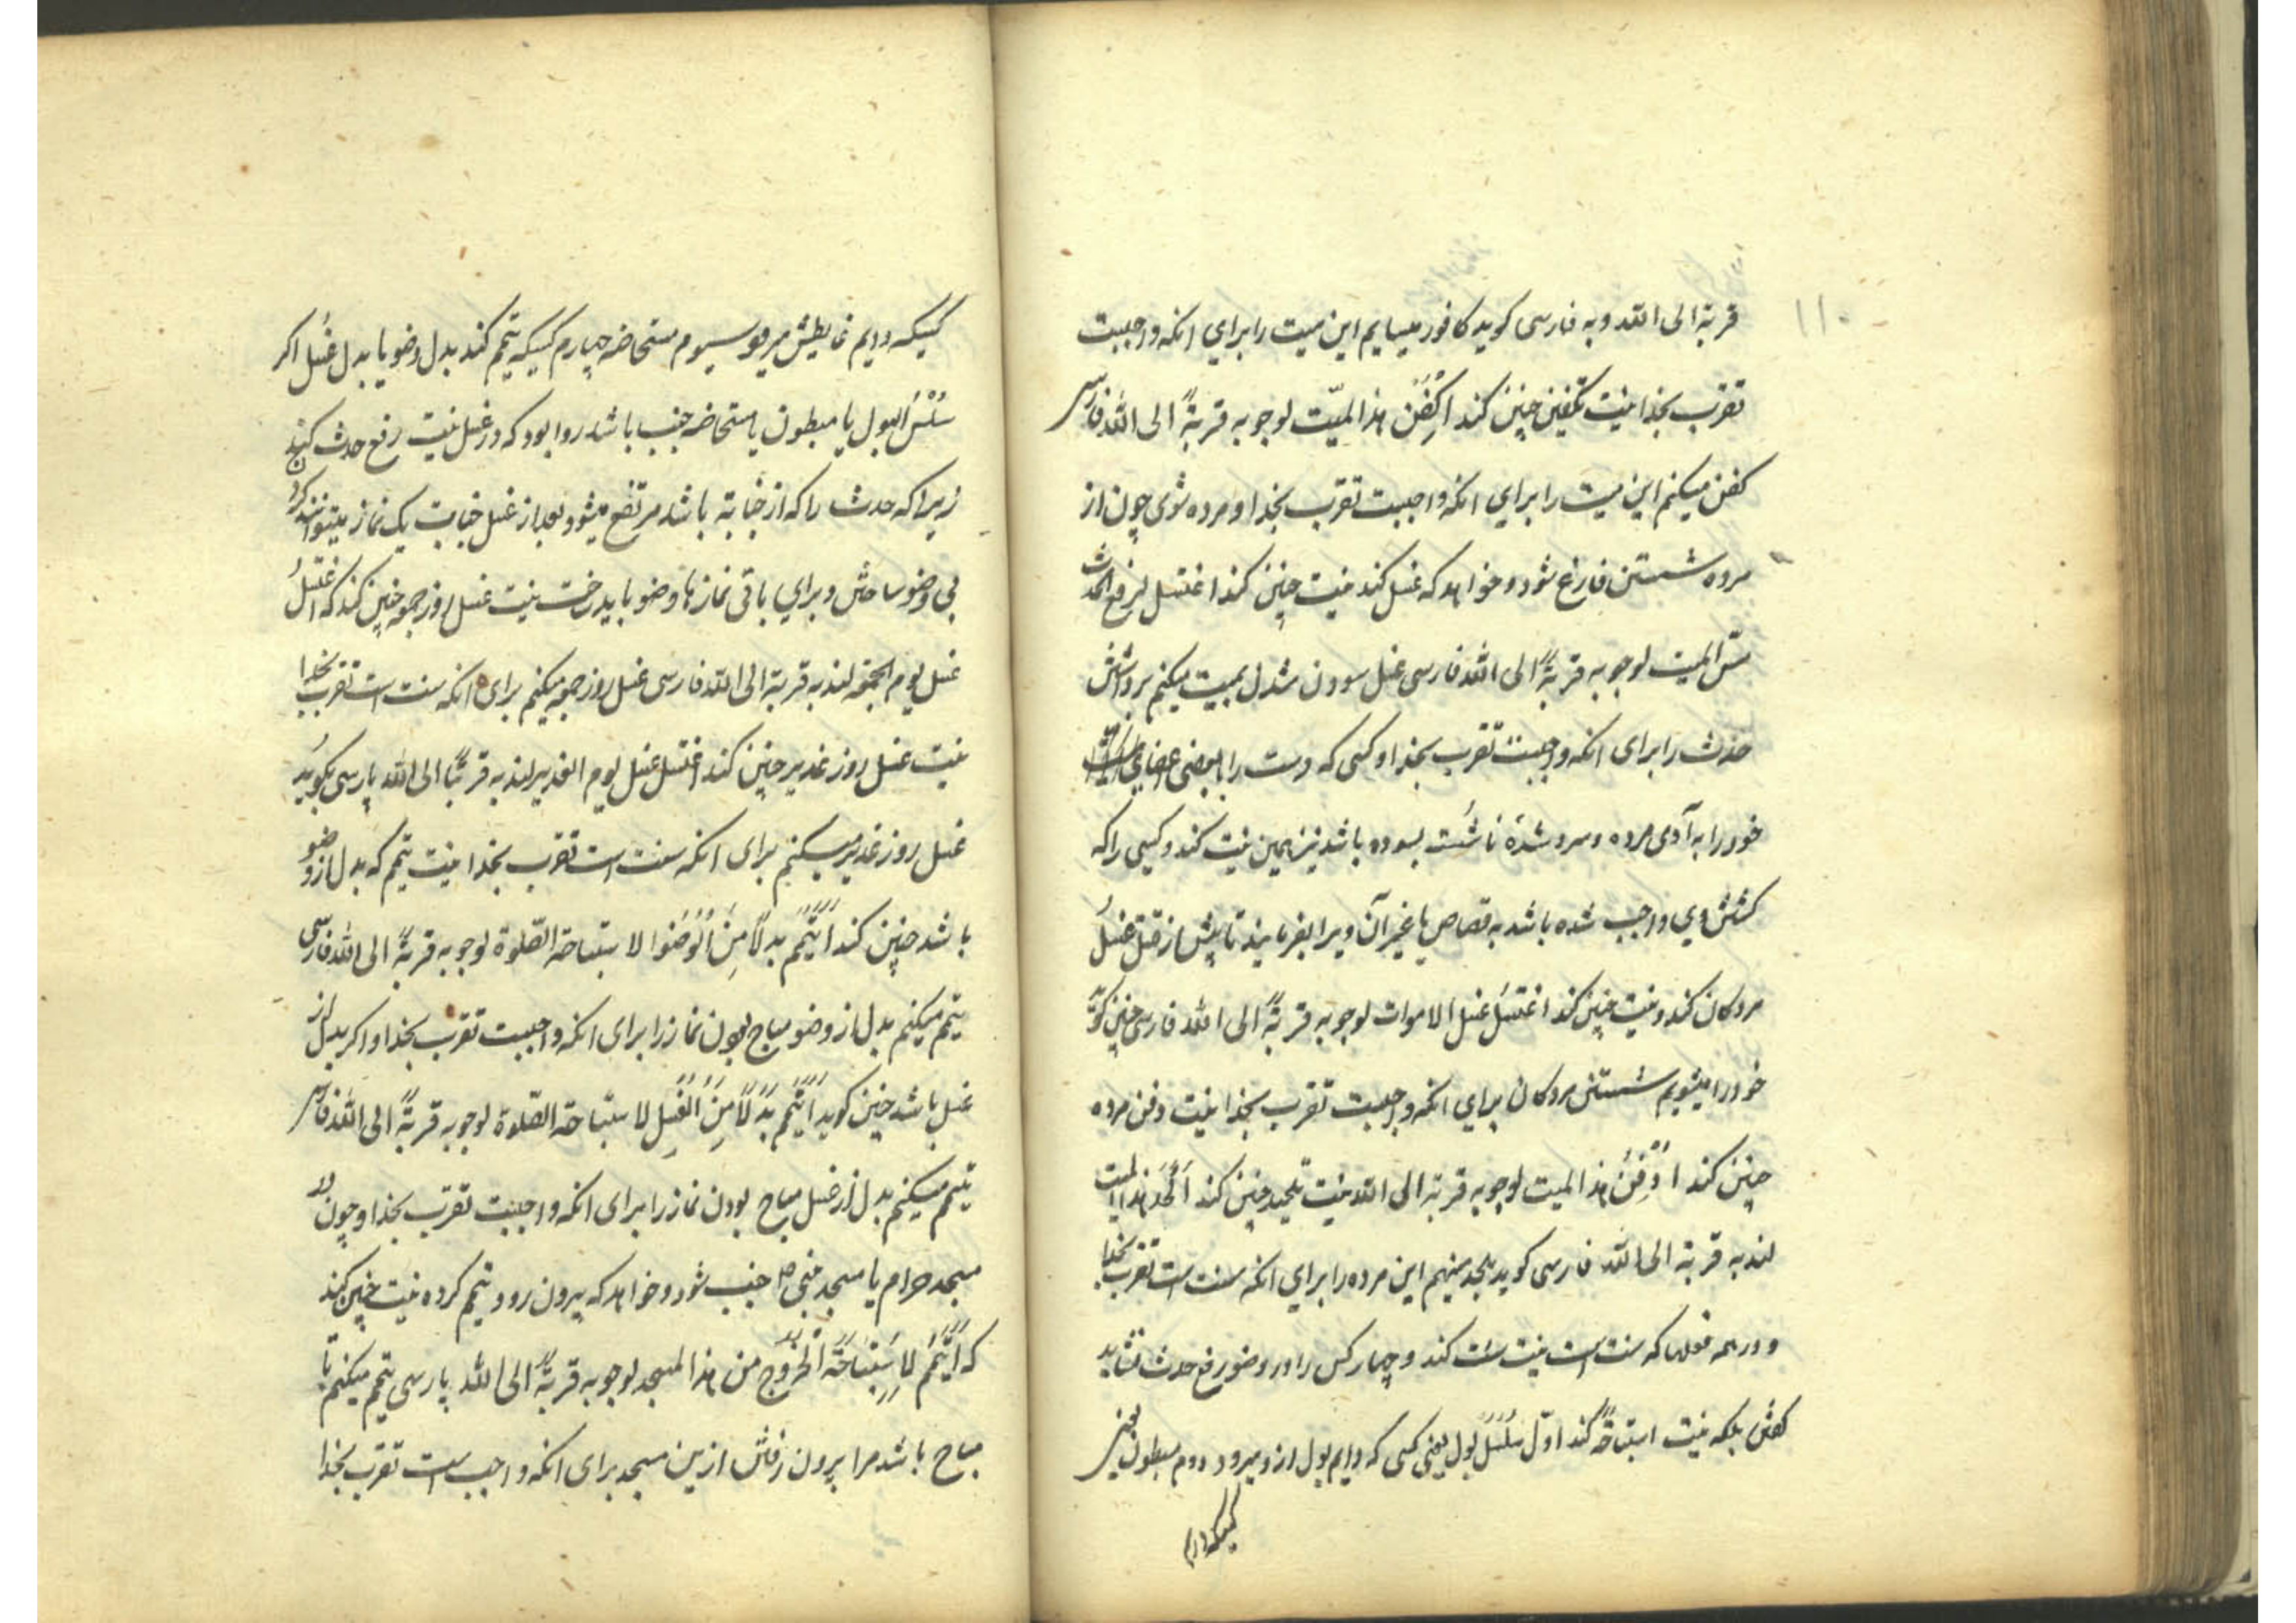 ۱۱۰
قربة الی الله و به فارسی کوید کافور میسایم این میت را برای انکه واجبست
تقرب بخدا نیت تکفین چنین کند اکفن هذا المیّت لوجوبه قربةً الی الله فارسی
کفن میکنم این میت را برای انکه واجبست تقرب بخدا و مرده شوی چون از
مرده شستن فارغ شود و خواهد که غسل کند نیت چنین کند اغتسل لرفع الحدث
مسّ المیت لوجوبه قربةً الی الله فارسی غسل سودن میت میکنم برداشتن
حدث را برای انکه واجبست تقرب بخدا و کسی که دست را یا بعضی اعضای
خود را به آدمی مرده و سرد شدهٔ ناشسته بسوده باشد نیز همین نیت کند و کسی را که
کشتن وی واجب شده باشد به قصاص یا غیر آن ویرا بفرمایند تا پیش از قتل غسل
مردکان کند و نیت چنین کند اغتسل غسل الاموات لوجوبه قربةً الی الله فارسی چنین کوید
خود را میشویم شستن مردکان برای انکه واجبست تقرب بخدا نیت دفن مرده
چنین کند ادفن هذا المیت لوجوبه قربة الی الله نیت تلحید چنین کند الحد هذا المیت
لندبه قربة الی الله فارسی کوید بلحد مینهم این مرده را برای انکه سنت است تقرب بخدا
و در همه فعلها که سنت است نیت سنت کند و چهار کس را در وضو رفع حدث نشاید
کفتن بلکه نیت استباحةً کند اوّل سلسل بول یعنی کسی که دایم بول ازو میرود دوم مبطون یعنی
کسیکه دایم
کسیکه دایم غایطش میرود سیوم مستحاضه چهارم کسیکه تیمم کند بدل وضو یا بدل غسل اکر
سلس البول یا مبطون یا مستحاضه جنب باشد روا بود که در غسل نیت رفع حدث کنند
زیرا که حدث را که از جنابة باشد مرتفع میشود و بعد از غسل جنابت یک نماز میتوانند کرد
بی وضو ساختن و برای باقی نمازها وضو باید ساخت نیت غسل روز جمعه چنین کند که اغتسل
غسل یوم الجمعة لندبه قربة الی الله فارسی غسل روز جمعه میکنم برای انکه سنت است تقرب بخدا
نیت غسل روز غدیر چنین کند اغتسل غسل یوم الغدیر لندبه قربةً الی الله پارسی بکوید
غسل روز غدیر میکنم برای انکه سنت است تقرب بخدا نیت تیمم که بدل از وضو
باشد چنین کند اَتَیَمّم بدلاً مِنَ الوُضوا لاستباحة الصّلوة لوجوبه قربةً الی الله فارسی
تیمم میکنم بدل از وضو مباح بودن نماز را برای انکه واجبست تقرب بخدا و اکر بدل از
غسل باشد چنین کوید اَتَیَمّم بَدَلاً مِنَ الغُسل لاستباحة الصّلوة لوجوبه قربةً الی الله فارسی
تیمم میکنم بدل از غسل مباح بودن نماز را برای انکه واجبست تقرب بخدا و چون در
مسجد حرام یا مسجد نبی ص جنب شود و خواهد که بیرون رود تیمم کرده نیت چنین کند
که اَتَیَمّم لاِستِباحَة الخُروج من هذا المسجد لوجوبه قربةً الی الله پارسی تیمم میکنم تا
مباح باشد مرا بیرون رفتن ازین مسجد برای انکه واجب است تقرب بخدا